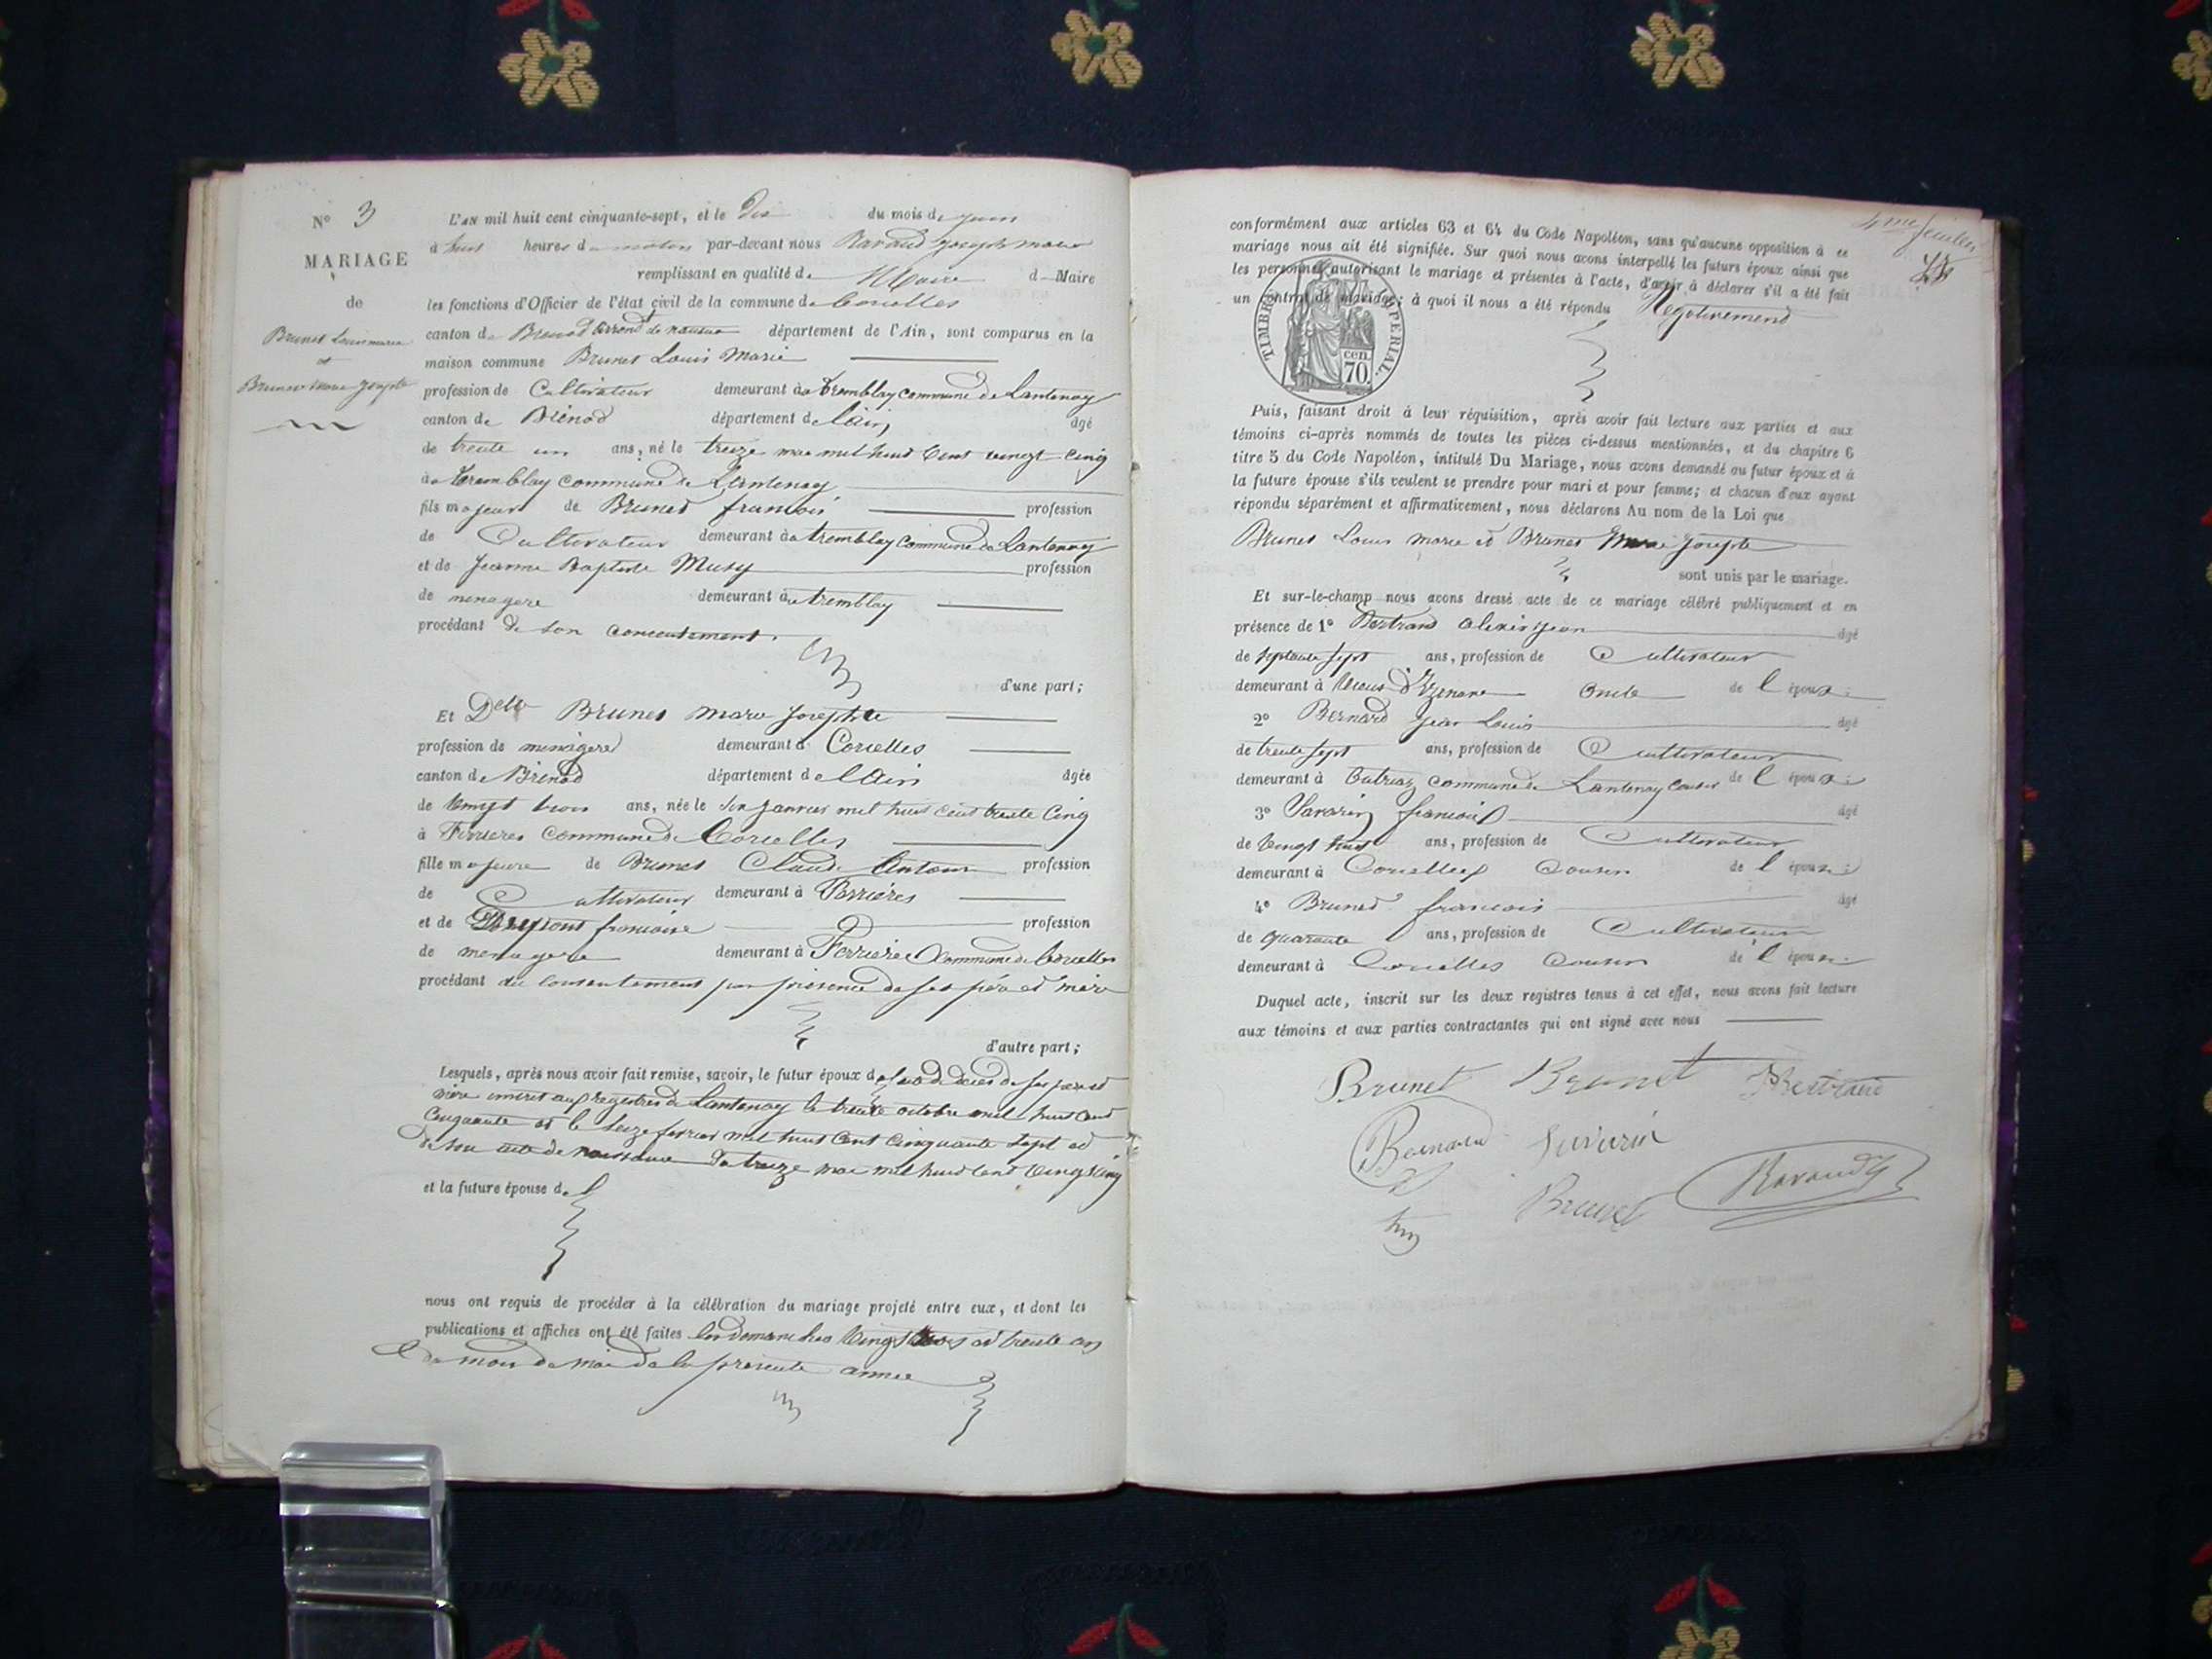 N° 3
MARIAGE
de
Brunet Louis marie
et
Brunet marie Josephte
L'AN mil huit cent cinquante-sept, et le Dix du mois de juin
à huit heures du matin par-devant nous Ravaud joseph marie
remplissant en qualité de Maire d Maire
les fonctions d'Officier de l'état civil de la commune de Corcelles
canton de Brenod arrond.t de nantua département de l'Ain, sont comparus en la
maison commune Brunet Louis Marie
profession de Cultivateur demeurant à tremblay commune de Lantenay
canton de Brénod département de l'ain âgé
de trente un ans, né le treize mai mil huit Cent vingt Cinq
à tremblay commune de Lantenay
fils majeur de Brunet francois profession
de Cultivateur demeurant à tremblay commune de Lantenay
et de Jeanne Baptiste Musy profession
de menagere demeurant à tremblay
procédant de son concentement.
d'une part;
Et Delle Brunet marie Josephte
profession de menagere demeurant à Corcelles
canton de Brénod département de l'Ain âgée
de vingt trois ans, née le janvier mil huit cent trente Cinq
à Ferrieres Commune de Corcelles
fille majeure de Brunet Claude Antoine profession
de Cultivateur demeurant à Ferrières
et de francoise profession
de menagere demeurant à Ferrieres Commune de Corcelles
procédant du consentement par présence de ses père et mère
d'autre part;
Lesquels, après nous avoir fait remise, savoir, le futur époux de l'acte de déces de ses pere et
mère inscrit aux registres de Lantenay le trente octobre mil huit cent
Cinquante et le seize fevrier mil huit Cent Cinquante sept et
de son acte de naissance du treize mai mil huit Cent vingt Cinq
et la future épouse de
nous ont requis de procéder à la célébration du mariage projeté entre eux, et dont les
publications et affiches ont été faites les demanches et trente un
du mois de mai de la présente année
4me feuillet
conformément aux articles 63 et 64 du Code Napoléon, sans qu'aucune opposition à ce
mariage nous ait été signifiée. Sur quoi nous avons interpellé les futurs époux ainsi que
les personnes autorisant le mariage et présentes à l'acte, d'avoir à déclarer s'il a été fait
un contrat de mariage; à quoi il nous a été répondu Negativement
TIMBRE IMPERIAL.
70 cen.
Puis, faisant droit à leur réquisition, après avoir fait lecture aux parties et aux
témoins ci-après nommés de toutes les pièces ci-dessus mentionnées, et du chapitre 6
titre 5 du Code Napoléon, intitulé Du Mariage, nous avons demandé au futur époux et à
la future épouse s'ils veulent se prendre pour mari et pour femme; et chacun d'eux ayant
répondu séparément et affirmativement, nous déclarons Au nom de la Loi que
Brunet Louis marie et Brunet Marie Josephte
sont unis par le mariage.
Et sur-le-champ nous avons dressé acte de ce mariage célébré publiquement et en
présence de 1° Bertrand alexis jean âgé
de septante sept ans, profession de Cultivateur
demeurant à Vieux d'Izenave oncle de l'épouse
2° Bernard jean Louis âgé
de trente sept ans, profession de Cultivateur
demeurant à Outriaz commune de Lantenay de l'épouse
3° Savarin francois âgé
de vingt huit ans, profession de Cultivateur
demeurant à Corcelles Cousin de l'épouse
4° Brunet francois âgé
de quarante ans, profession de Cultivateur
demeurant à Corcelles Cousin de l'épouse
Duquel acte, inscrit sur les deux registres tenus à cet effet, nous avons fait lecture
aux témoins et aux parties contractantes qui ont signé avec nous
Brunet Brunet Bertrand
Bernard Savarin
Brunet Ravaud